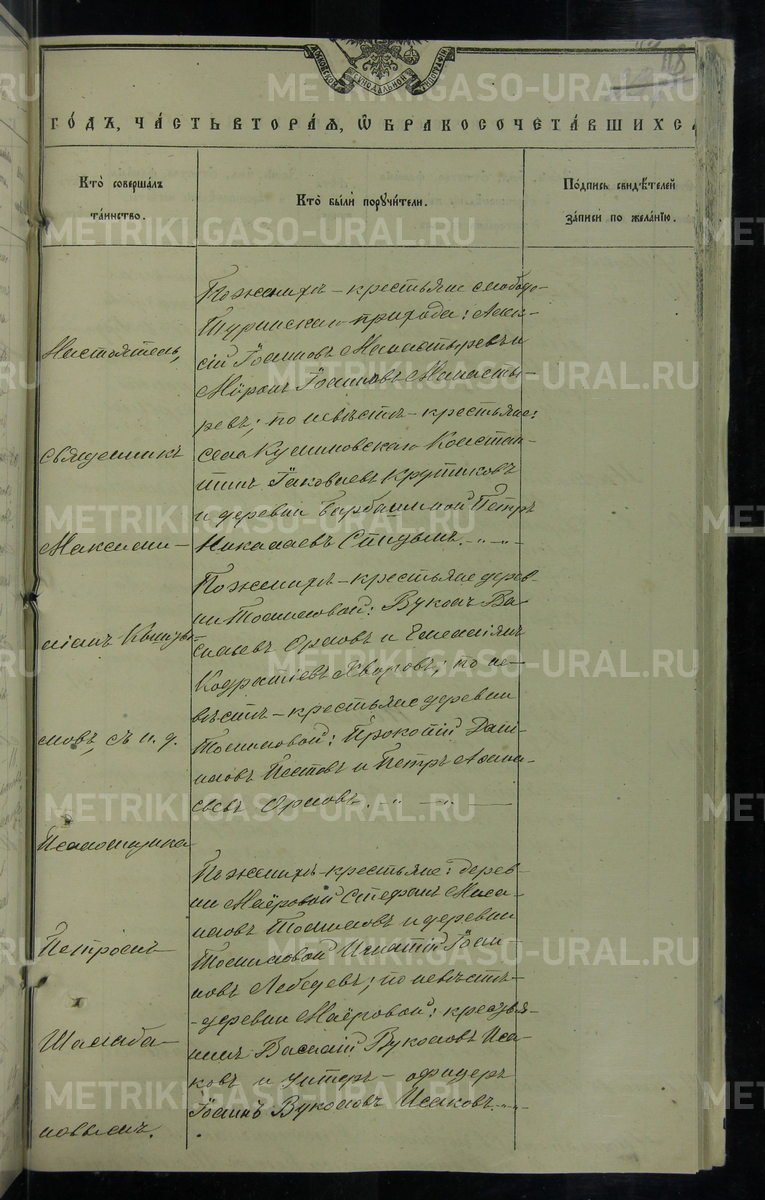 118
МОСКОВСКОЙ СѴНОДАЛЬНОЙ ТИПОГРАФІИ
ГО́ДЪ, ЧА́СТЬ ВТОРА́Я, Ѡ БРАКОСОЧЕТА́ВШИХСѦ
Кто̀ соверша́лъ
та́инство.
Кто̀ бы́ли пору́чители.
По́дпись свидѣ́телей
за́писи по жела́нію.
Настоятель,
священникъ
Максими-
ліанъ
мовъ, съ и. д.
Псаломщика
Петромъ
Шалаба-
новымъ.
По женихѣ – крестьяне слободо-
Туринскаго прихода: Алек-
сій Іоанновъ Манастыревъ и
Миронъ Іоанновъ Манасты-
ревъ; по невѣстѣ – крестьяне:
села Куминовскаго Констан-
тинъ Іаковлевъ Крутиковъ
и деревни Барбашиной Петръ
Николаевъ
По женихѣ – крестьяне дерев-
ни Тошмовой: Вуколъ Ва-
сильевъ Орловъ и Емелліянъ
Кодратіевъ Яваровъ; по не-
вѣстѣ – крестьяне деревни
Тошмовой: Прокопій Дани-
ловъ Пестовъ и Петръ Афана-
сьевъ Орловъ.
По женихѣ – крестьяне: дерев-
ни Маёровой Стефанъ Миха-
иловъ и деревни
Тошмовой Игнатій Іоан
новъ Лебедевъ; по невѣстѣ-
- деревни Маёровой: крестья-
нинъ Василій Вуколовъ Иса-
ковъ и унтеръ – офицеръ
Іоаннъ Вуколовъ Исаковъ.
METRIKI.GASO-URAL.RU